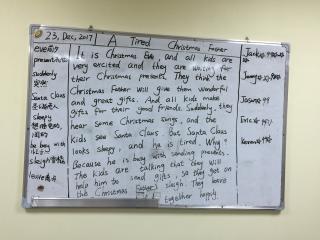 23, Dec, 2017
A Tired Christmas Father
eve前夕
presents
suddenly
突然
Santa Claus
圣诞老人
sleepy
be busy with
sleigh雪橇
leave离开
It is Christmas Eve, and all kids are
very excited and they are waiting for
their Christmas presents. They think the
Christmas Father will give them wonderful
and great gifts. And all kids make
gifts for their good friends. Suddenly, they
hear some Christmas songs, and the
kids see Santa Claus. But Santa Claus
looks sleepy, and he is tired. Why?
Because he is busy with sending presents.
The kids are talking that they will
help him to send gifts, so they get on
the Christmas Father's sleigh. They leave
together happily.
Jack
Jason
Eric
Karen